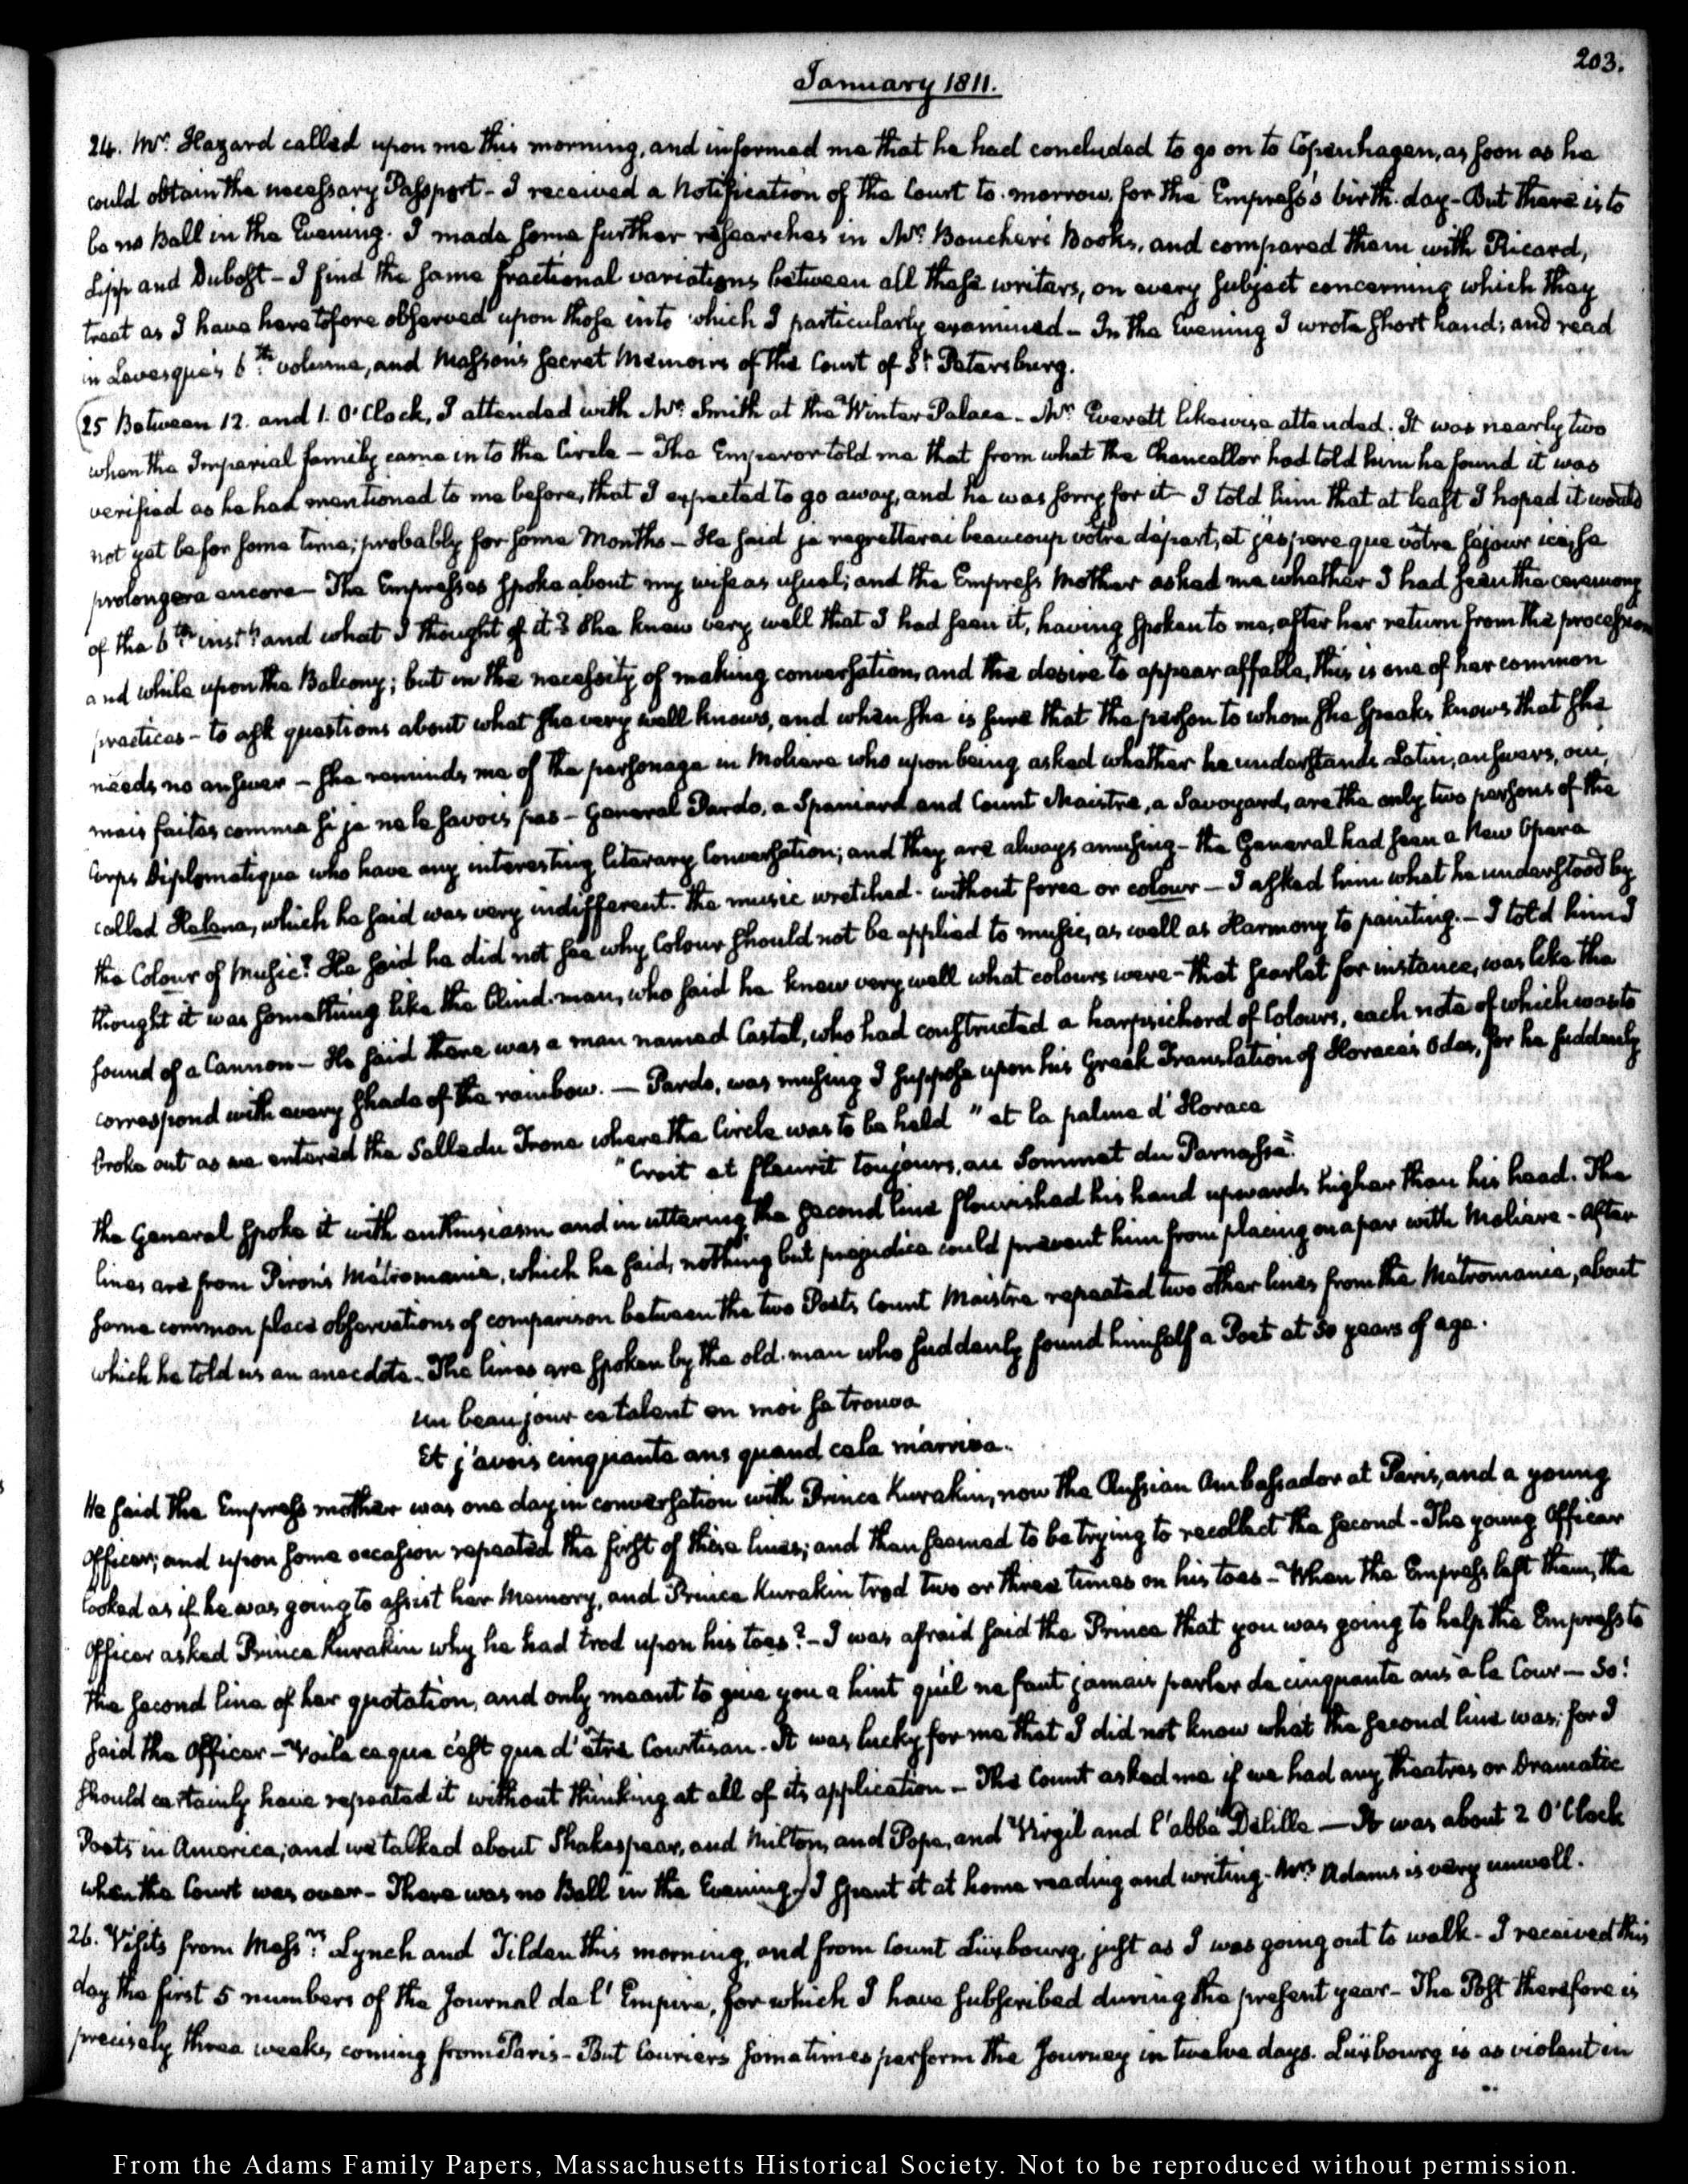 203.
January 1811.
24. Mr. Hazard called upon me this morning, and informed me that he had concluded to go on to Copenhagen, as soon as he
could obtain the necessary Passport - I received a Notification of the Court to-morrow, for the Empress's birth-day - But there is to
be no Ball in the Evening. I made some further researches in Mr. Boucher's Books, and compared them with Ricard,
Lipp and Dubost - I find the same fractional variations between all these writers, on every subject concerning which they
treat as I have heretofore observed upon those into which I particularly examined - In the Evening I wrote short hand; and read
in Levesque's 6th. volume, and Masson's Secret Memoirs of the Court of St. Petersburg.
25 Between 12. and 1. O'Clock, I attended with Mr. Smith at the Winter Palace - Mr. Everett likewise attended. It was nearly two
when the Imperial family came in to the Circle - The Emperor told me that from what the Chancellor had told him he found it was
verified as he had mentioned to me before, that I expected to go away, and he was sorry for it - I told him that at least I hoped it would
not yet be for some time; probably for some Months - He said je regretterai beaucoup vôtre départ, et j'espere que vôtre séjour ici, se
prolongera encore - The Empresses spoke about my wife as usual; and the Empress Mother asked me whether I had seen the ceremony
of the 6th. instt. and what I thought of it? She knew very well that I had seen it, having spoken to me, after her return from the procession
and while upon the Balcony; but in the necessity of making conversation, and the desire to appear affable, this is one of her common
practices - to ask questions about what she very well knows, and when she is sure that the person to whom she speaks knows that she
needs no answer - She reminds me of the personage in Moliere who upon being asked whether he understands Latin, answers, oui,
mais faites comme si je ne le savois pas - General Pardo, a Spaniard, and Count Maistre, a Savoyard, are the only two persons of the
Corps Diplomatique who have any interesting literary Conversation; and they are always amusing - the General had seen a New Opera
called Helena, which he said was very indifferent. The music wretched - without force or colour - I asked him what he understood by
the Colour of Music? He said he did not see why Colour should not be applied to music, as well as Harmony to painting. - I told him I
thought it was something like the blind-man, who said he knew very well what colours were - that scarlet for instance, was like the
sound of a Cannon - He said there was a man named Castel, who had constructed a harpsichord of Colours, each note of which was to
correspond with every shade of the rainbow. - Pardo, was musing I suppose upon his Greek Translation of Horace's Odes, for he suddenly
broke out as we entered the Salle du Trone where the Circle was to be held " et la palme d'Horace
"Croit et fleurit toujours, au Sommet du Parnasse."
the General spoke it with enthusiasm and in uttering the second line flourished his hand upwards higher than his head. The
lines are from Piron's Métromanie, which he said, nothing but prejudice could prevent him from placing on a par with Moliere - After
some common place observations of comparison between the two Poets Count Maistre repeated two other lines from the Métromanie, about
which he told us an anecdote - The lines are spoken by the old man who suddenly found himself a Poet at 50 years of age.
Un beau jour ce talent en moi se trouva
Et j'avois cinquante ans quand cela m'arriva.
He said the Empress mother was one day in conversation with Prince Kurakin, now the Russian Ambassador at Paris, and a young
Officer; and upon some occasion repeated the first of these lines; and then seemed to be trying to recollect the second - The young Officer
looked as if he was going to assist her Memory, and Prince Kurakin trod two or three times on his toes - When the Empress left them, the
Officer asked Prince Kurakin why he had trod upon his toes? - I was afraid said the Prince that you was going to help the Empress to
the second line of her quotation, and only meant to give you a hint qu'il ne faut jamais parler de cinquante ans à la Cour - So!
said the Officer - Voila ce que c'est que d'être Courtisan - It was lucky for me that I did not know what the second line was; for I
should certainly have repeated it without thinking at all of its application - The Count asked me if we had any theatres or Dramatic
Poets in America; and we talked about Shakespear, and Milton, and Pope, and Virgil and l'abbé Delille - It was about 2 O'Clock
when the Court was over - There was no Ball in the Evening. I spent it at home reading and writing - Mrs. Adams is very unwell.
26. Visits from Messrs. Lynch and Tilden this morning, and from Count Luxbourg, just as I was going out to walk - I received this
day the first 5 numbers of the Journal de l'Empire, for which I have subscribed during the present year - The Post therefore is
precisely three weeks, coming from Paris - But Couriers sometimes perform the Journey in twelve days. Luxbourg is as violent in
From the Adams Family Papers, Massachusetts Historical Society. Not to be reproduced without permission.